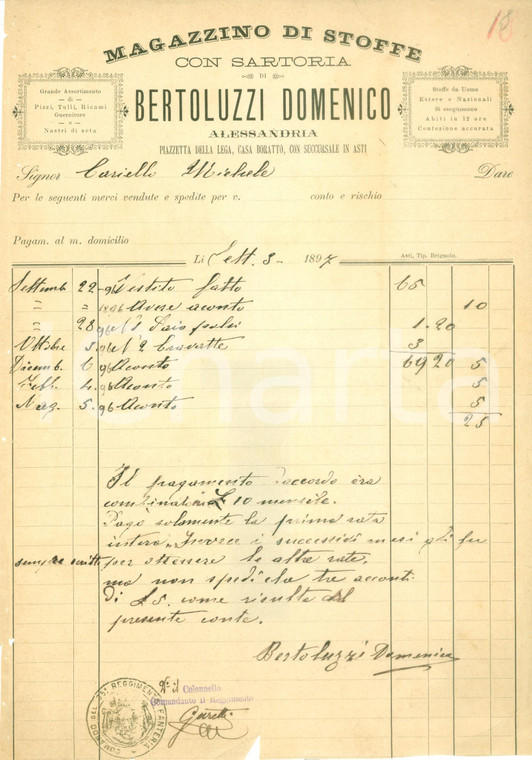 18
MAGAZZINO DI STOFFE
CON SARTORIA
DI
BERTOLUZZI DOMENICO
ALESSANDRIA
PIAZZETTA DELLA LEGA, CASA BORATTO, CON SUCCURSALE IN ASTI
Grande Assortimento
di
Pizzi, Tulli, Ricami
Guernizioni
e
Nastri di seta
Stoffe da Uomo
Estere e Nazionali
Si eseguiscono
Abiti in 12 ore
Confezione accurata
Signor Cariello Michele Dare
Per le seguenti merci vendute e spedite per v. conto e rischio
Pagam. al m. domicilio
Li Sett. 3 - 1897
Asti, Tip. Brignolo.
Settemb 22 - 96 Vestito fatto 65
" " 1896 Avere aconto 10
" 28 96 1 Paio 1.20
Ottobre 3 96 2 Cravatte 3
Dicemb. 6 96 Aconto 6920 5
Febb. 4 96 Aconto 5
Mag. 5 96 Aconto 5
25
Il pagamento d'accordo era
combinato a £ 10 mensile.
Pagò solamente la prima rata
intera. Invece i successivi mesi gli fu
sempre scritto per ottenere le altre rate.
ma non spedì che tre acconti
di £ 5. come risulta dal
presente conto.
Bertoluzzi Domenico
Il Colonnello
Comandante il Reggimento
COMANDO DEL REGGIMENTO FANTERIA